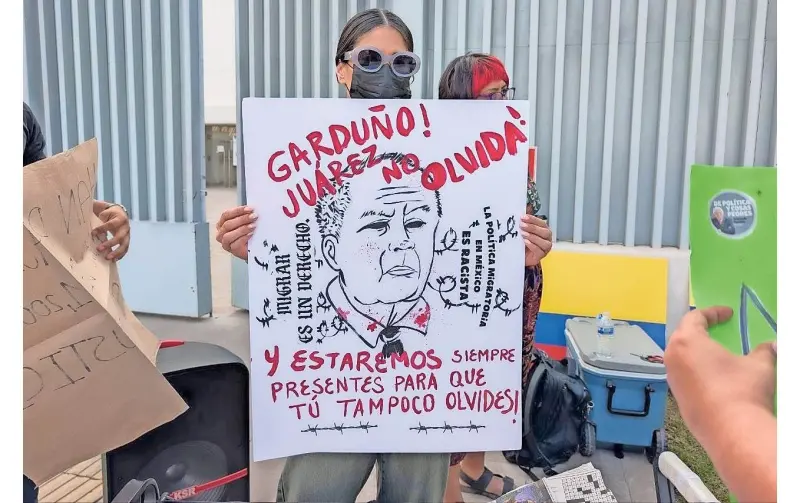 GARDUÑO!
JUÁREZ NO OLVIDA!
MIGRAR
ES UN DERECHO.
LA POLÍTICA MIGRATORIA
EN MÉXICO
ES RACISTA
Y ESTAREMOS SIEMPRE
PRESENTES PARA QUE
TÚ TAMPOCO OLVIDES!
DE POLÍTICA
Y COSAS
PEORES
KSR